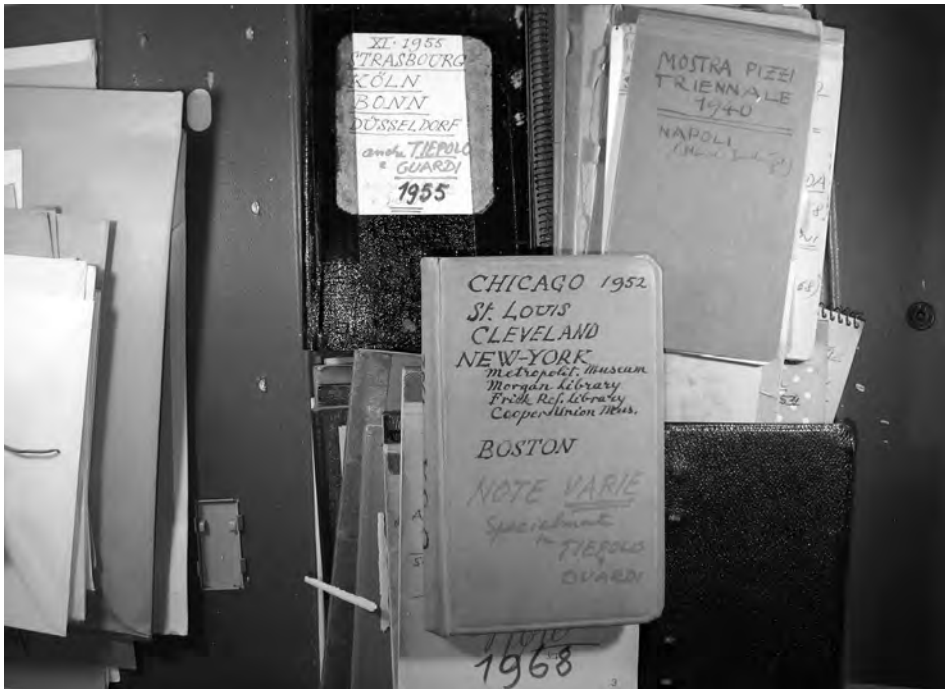 XI · 1955
STRASBOURG
KÖLN
BONN
DÜSSELDORF
anche TIEPOLO
e GUARDI
1955
MOSTRA PIZZI
TRIENNALE
1940
NAPOLI
CHICAGO 1952
St. LOUIS
CLEVELAND
NEW-YORK
Metropolit. Museum
Morgan Library
Frick Ref. Library
Cooper Union Mus.
BOSTON
NOTE VARIE
Specialmente
TIEPOLO
GUARDI
1968